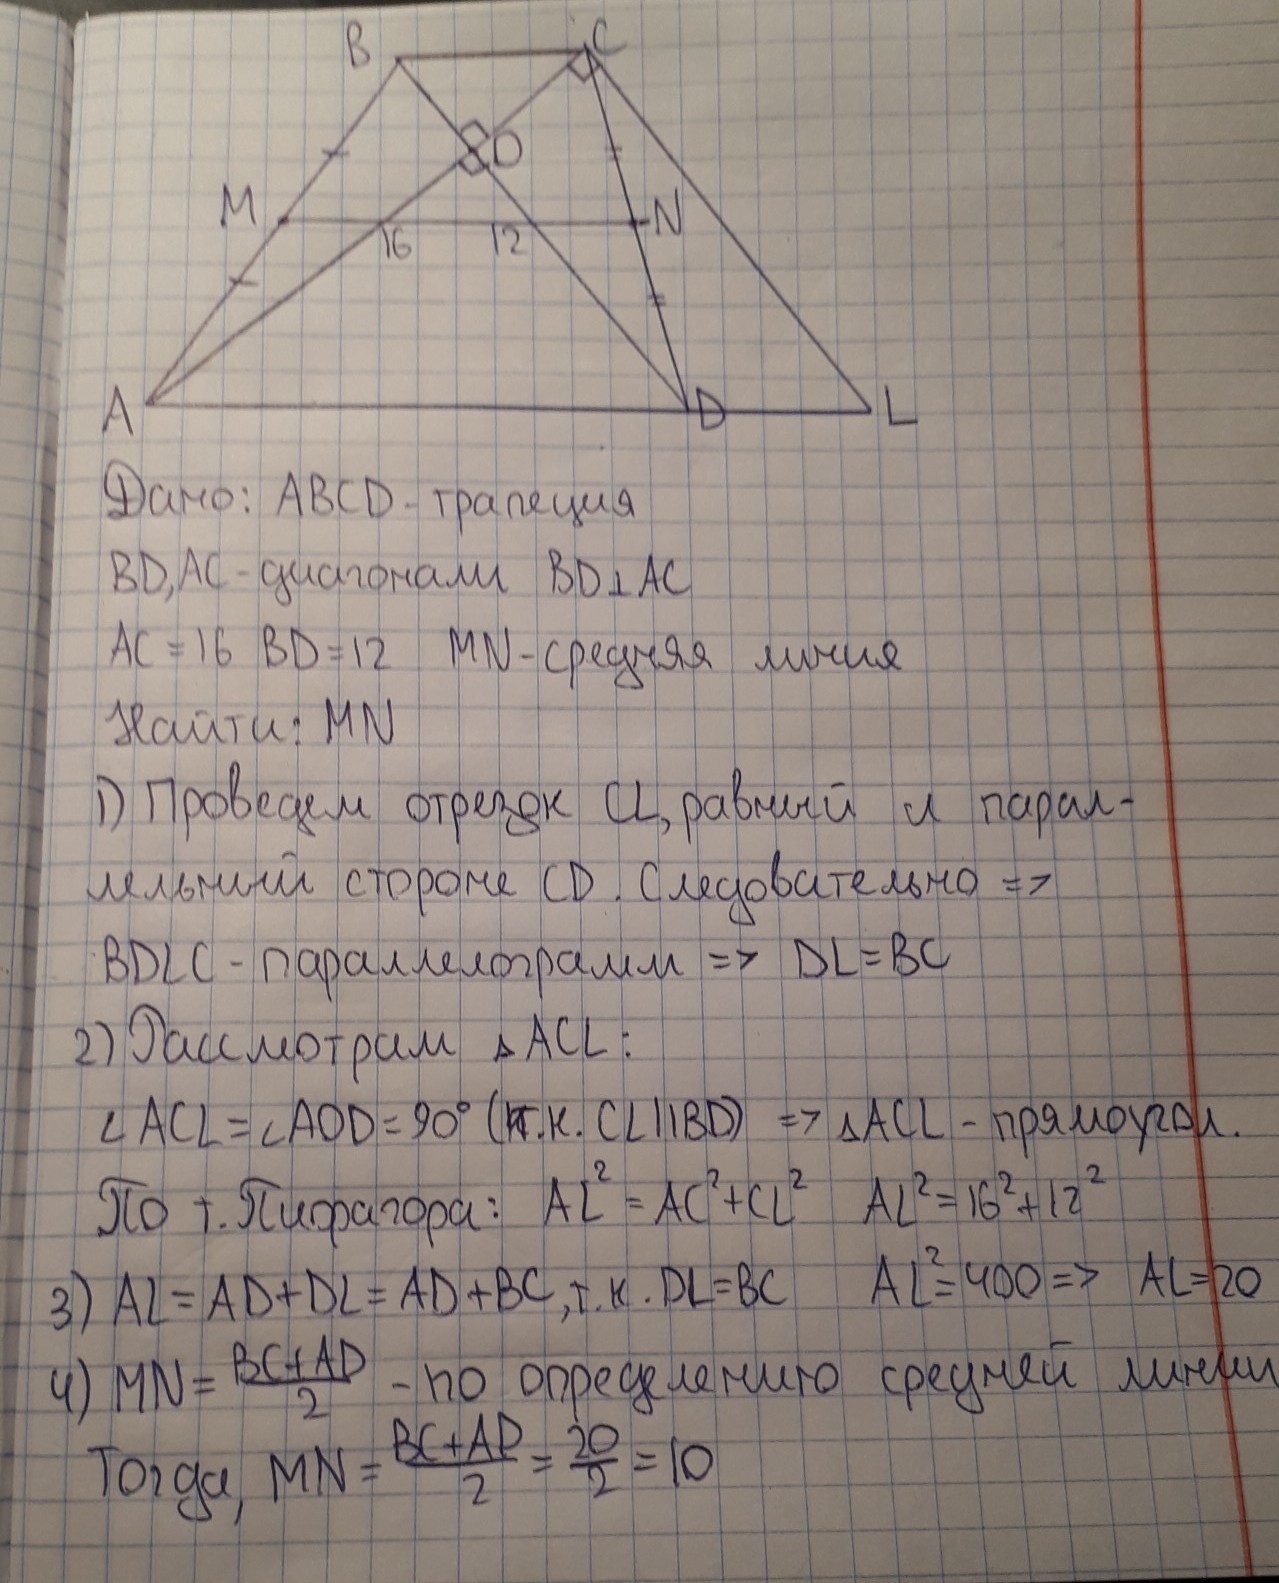 B C
O
M N
16 12
A D L
Дано: ABCD - трапеция
BD, AC - диагонали BD⊥AC
AC = 16 BD = 12 MN - средняя линия
Найти: MN
1) Проведем отрезок CL, равный и парал-
лельный стороне CD. Следовательно =>
BDLC - параллелограмм => DL = BC
2) Рассмотрим △ACL:
∠ACL = ∠AOD = 90° (т.к. CL||BD) => △ACL - прямоугол.
По т. Пифагора: AL² = AC² + CL² AL² = 16² + 12²
3) AL = AD + DL = AD + BC, т.к. DL = BC AL² = 400 => AL = 20
4) MN = (BC+AD)/2 - по определению средней линии
Тогда, MN = (BC+AD)/2 = 20/2 = 10